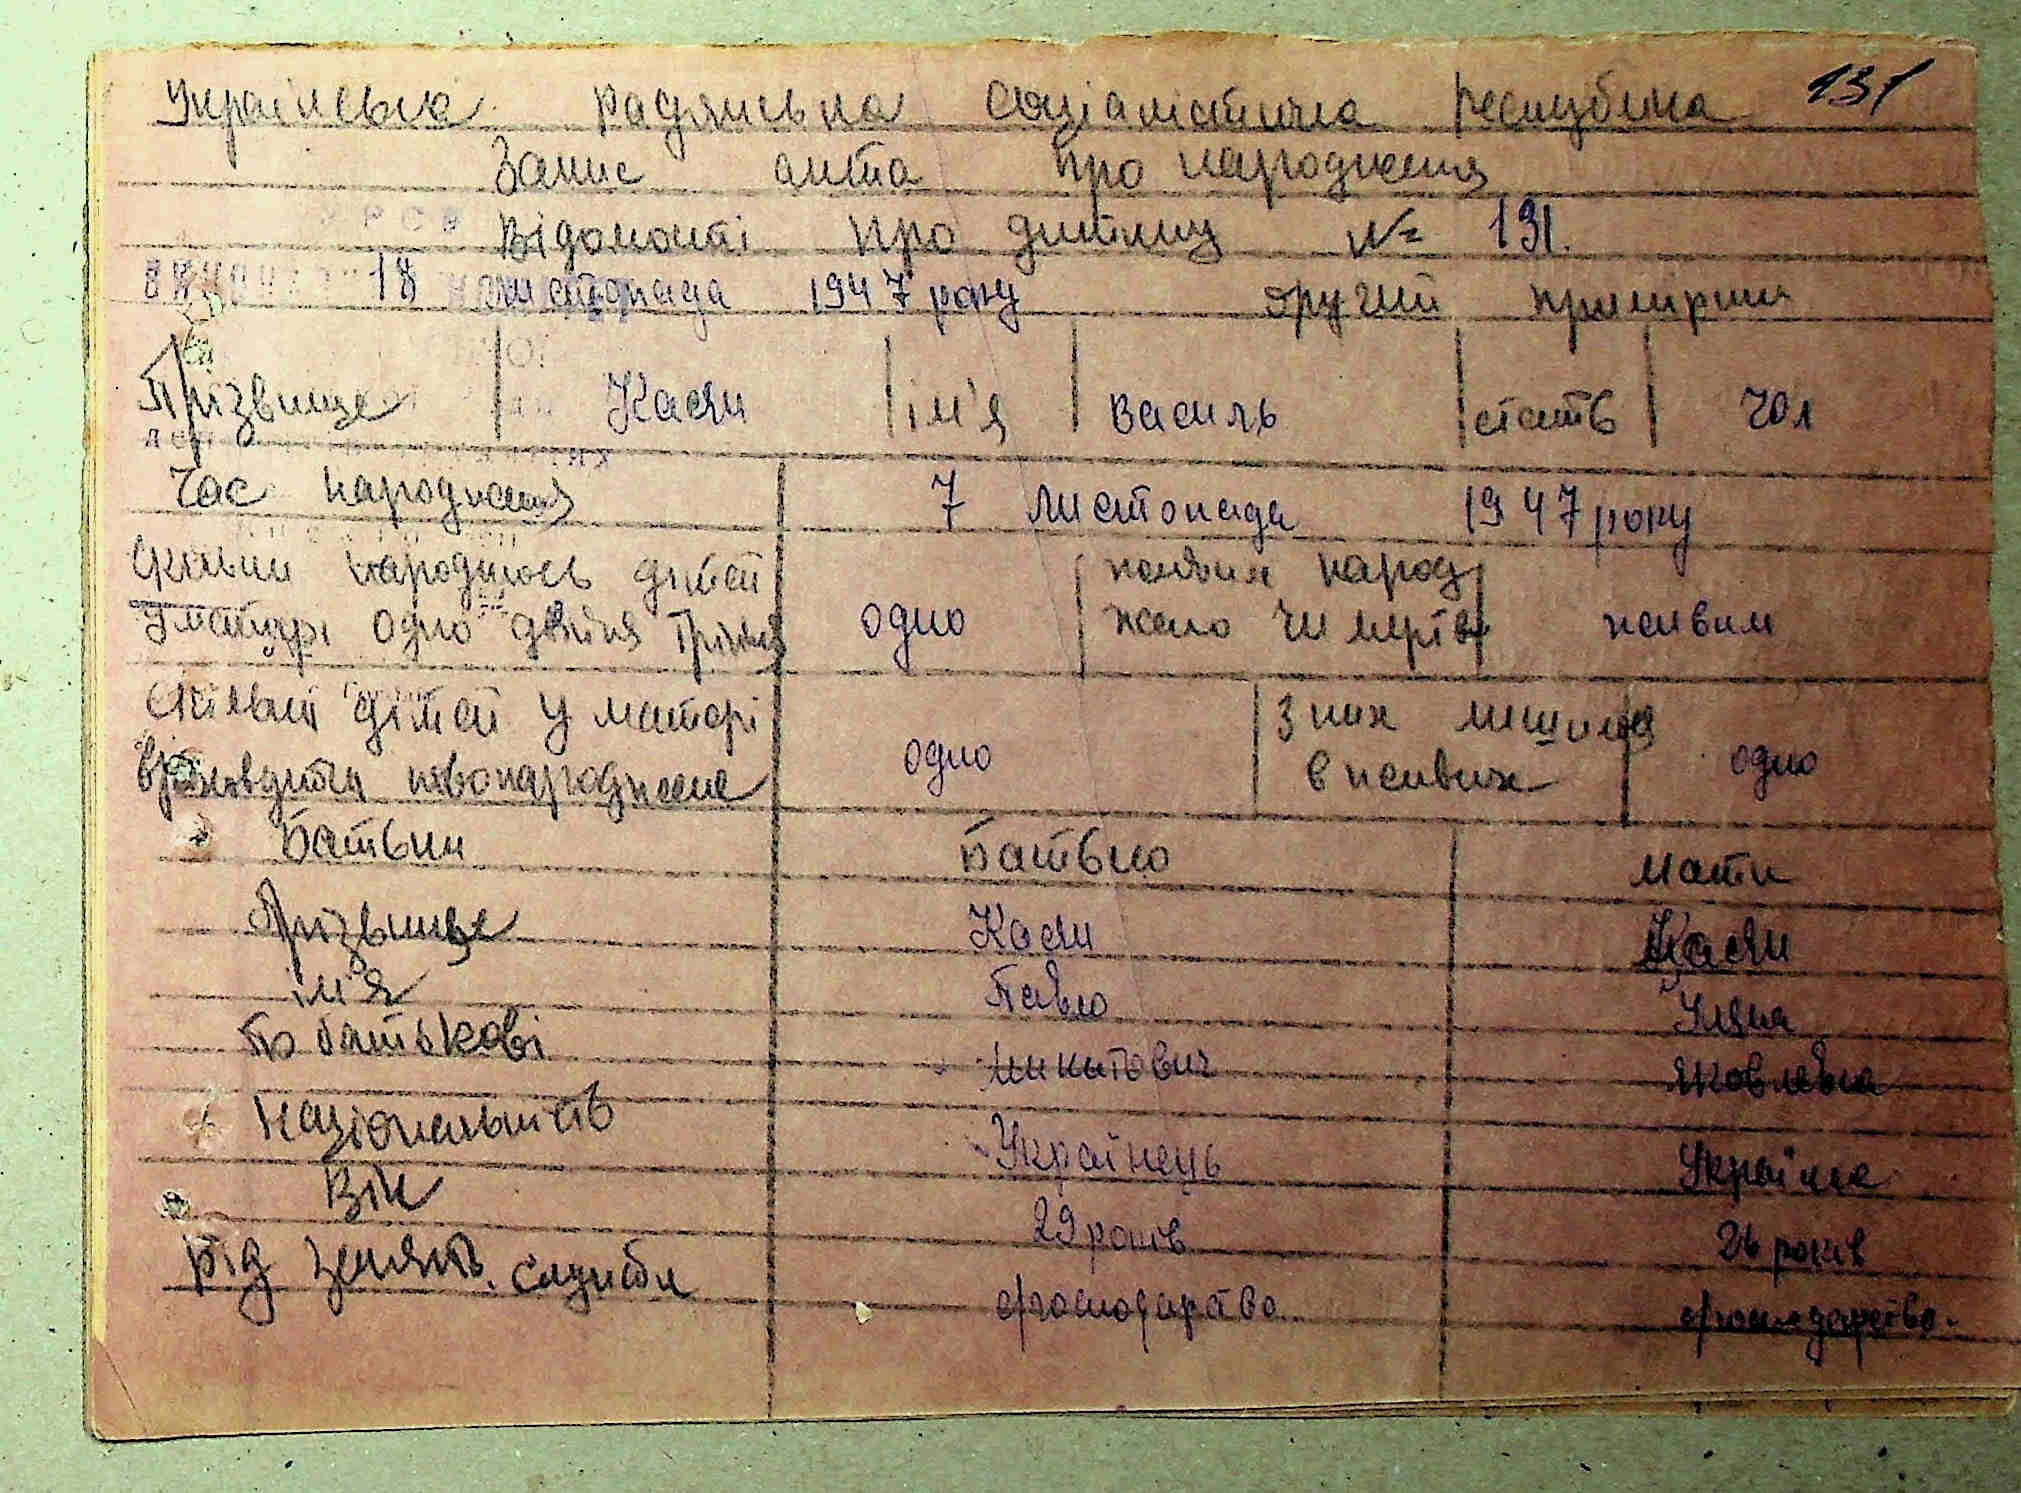 131
Українська радянська соціалістична республіка
Запис акта про народження
Відомості про дитину № 131.
18 листопада 1947 року другий примірник
Прізвище Касян ім'я Василь стать чол
Час народження 7 листопада 1947 року
Скільки народилось дітей живим народ
у матері одно двійня трійня одно жено чи мертв живим
Скільки дітей у матері з них лишился
враховуючи новонароджене одно в живих одно
Батьки Батько мати
Прізвище Касян Касян
ім'я Павло Уляна
По батькові Микитович Яковлевна
Національність Українець Українка
Вік 29 років 26 років
рід занять. служби с/господарство с/господарство.